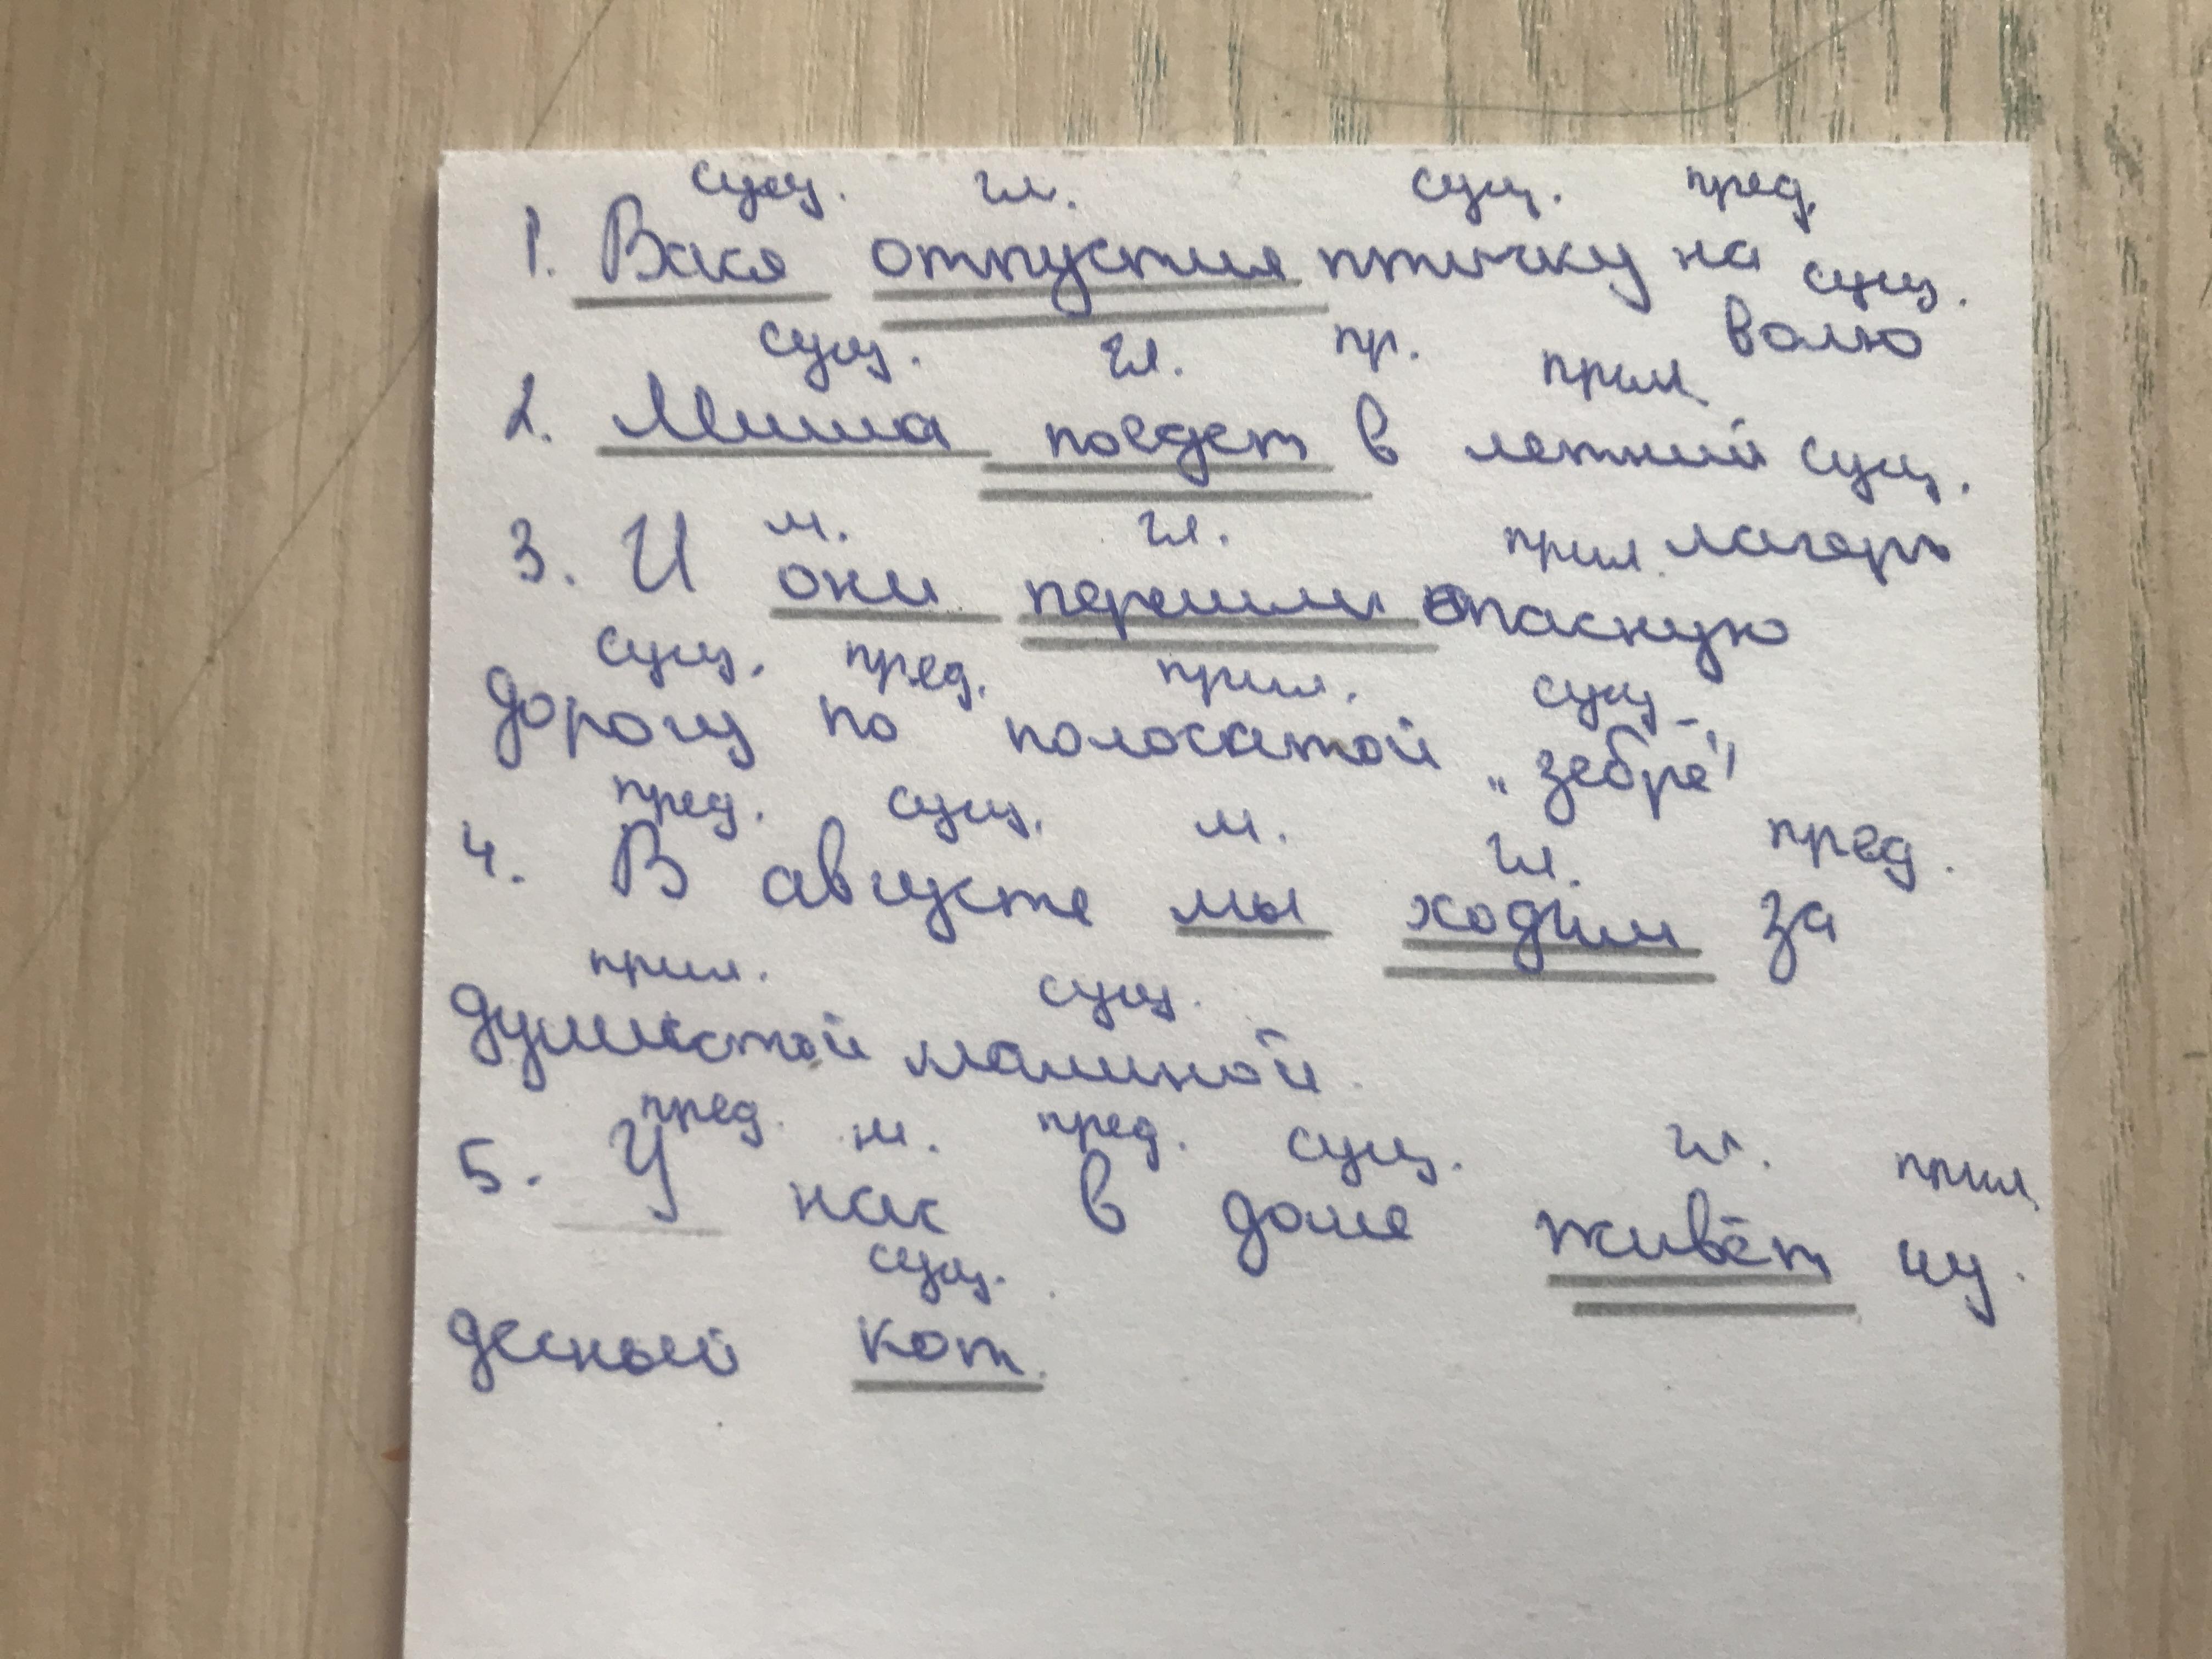 сущ. гл. сущ. пред.
1. Вася отпустил птичку на сущ.
волю
сущ. гл. пр. прил.
2. Миша поедет в летний сущ.
лагерь
м. гл. прил.
3. И они перешли опасную
сущ. пред. прил. сущ.
дорогу по полосатой „зебре"
пред. сущ. м. гл. пред.
4. В августе мы ходим за
прил. сущ.
душистой малиной.
пред. м. пред. сущ. гл. прил.
5. У нас в доме живёт чу-
сущ.
десный кот.